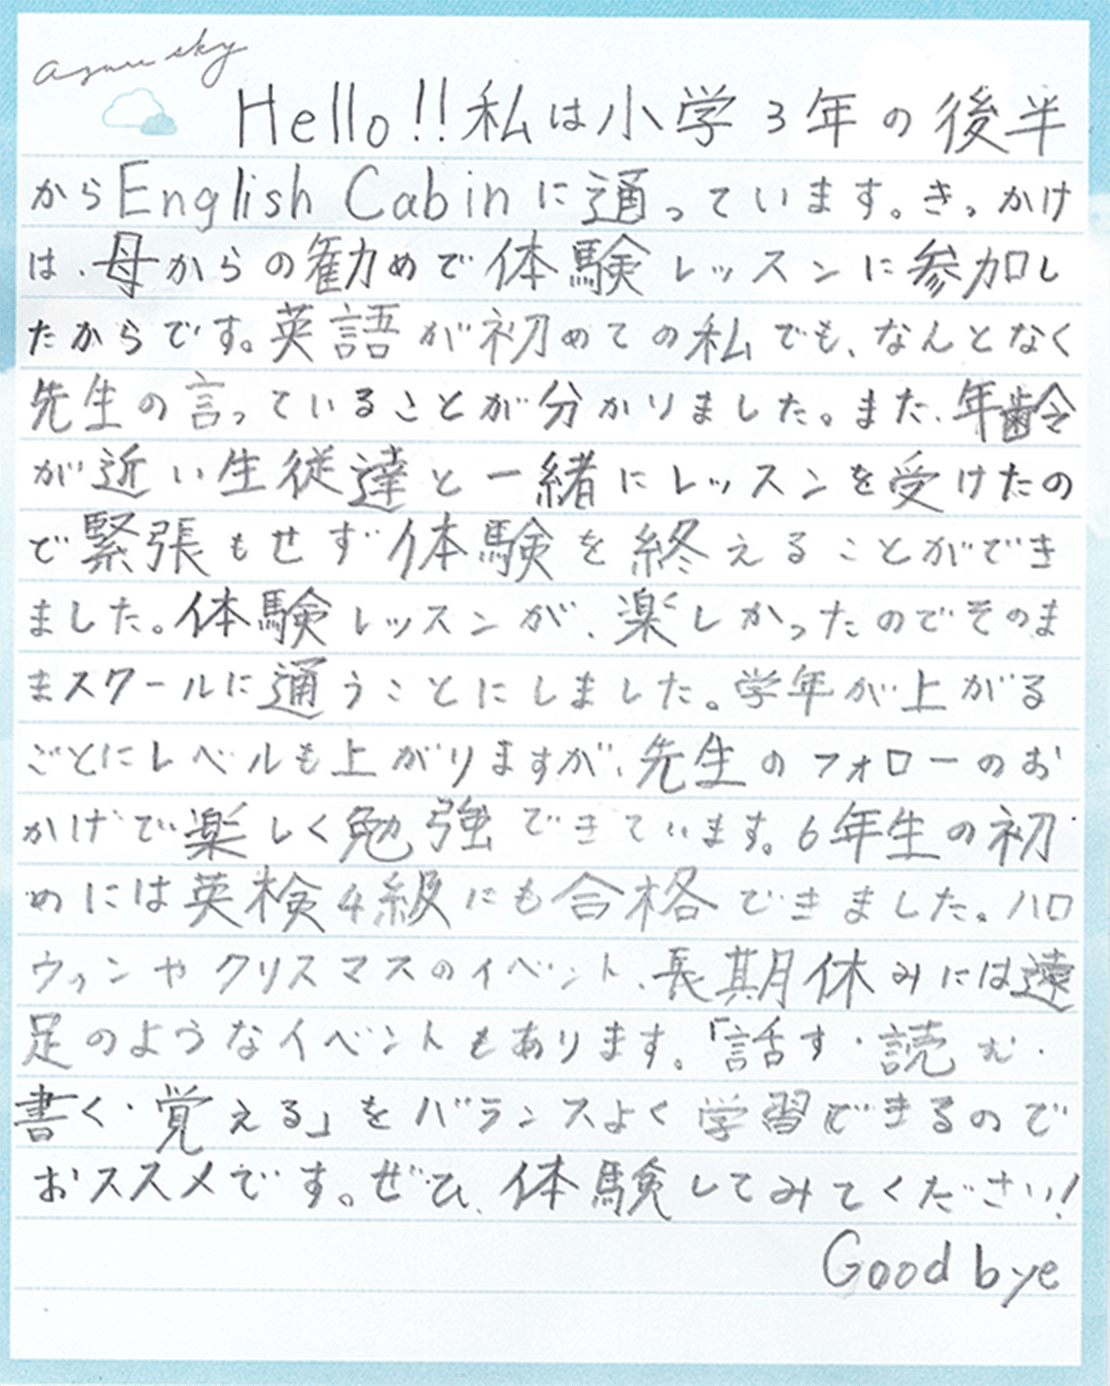 azure sky
Hello!!私は小学3年の後半
からEnglish Cabinに通っています。きっかけ
は、母からの勧めで体験レッスンに参加し
たからです。英語が初めての私でも、なんとなく
先生の言っていることが分かりました。また、年齢
が近い生従達と一緒にレッスンを受けたの
で緊張もせず体験を終えることができ
ました。体験レッスンが、楽しかったのでそのま
まスクールに通うことにしました。学年が上がる
ごとにレベルも上がりますが、先生のフォローのお
かげで楽しく勉強できています。6年生の初
めには英検4級にも合格できました。ハロ
ウィンやクリスマスのイベント、長期休みには遠
足のようなイベントもあります。「話す・読む・
書く・覚える」をバランスよく学習できるので
おススメです。ぜひ、体験してみてください!
Good bye